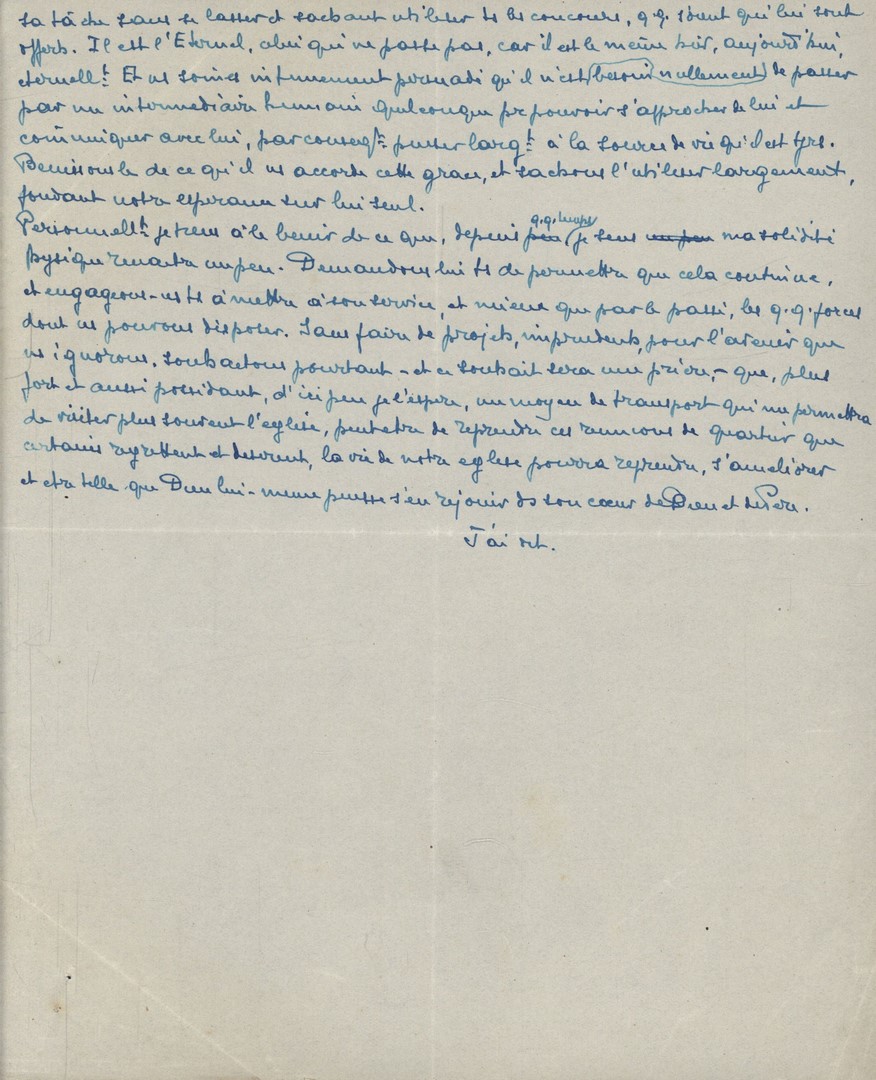 sa tâche sans se lasser et sachant utiliser ts les concours, q.q. soient qui lui sont
offerts. Il est l'Eternel, celui qui ne passe pas, car il est le même hier, aujourd'hui,
eternellt. Et ns somes intimement persuadé qu'il n'est besoin nullement de passer
par un intermédiaire humain quelconque pr pouvoir s'approcher de lui et
comuniquer avec lui, par conseqt puiser largt à la source de vie qu'il est tjrs.
Benissons le de ce qu'il ns accorde cette grace, et sachons l'utiliser largement,
fondant notre esperance sur lui seul.
Personnellt je tiens à le benir de ce que, depuis peu q.q. temps je sens un peu ma solidité
physique renaitre un peu. Demandons lui ts de permettre que cela continue,
et engageons-ns ts à mettre à son service, et mieux que par le passé, les q.q. forces
dont ns pouvons disposer. Sans faire de projets, imprudents, pour l'avenir que
ns ignorons, souhaitons pourtant - et ce souhait sera une prière, - que, plus
fort et aussi possédant, d'ici peu je l'espere, un moyen de transport qui me permettra
de visiter plus souvent l'eglise, peut etre de reprendre ces reunions de quartier que
certains regrettent et desirent, la vie de notre eglise pourra reprendre, s'améliorer
et etre telle que Dieu lui-meme puisse s'en rejouir ds son cœur de Dieu et de Père.
J'ai dit.